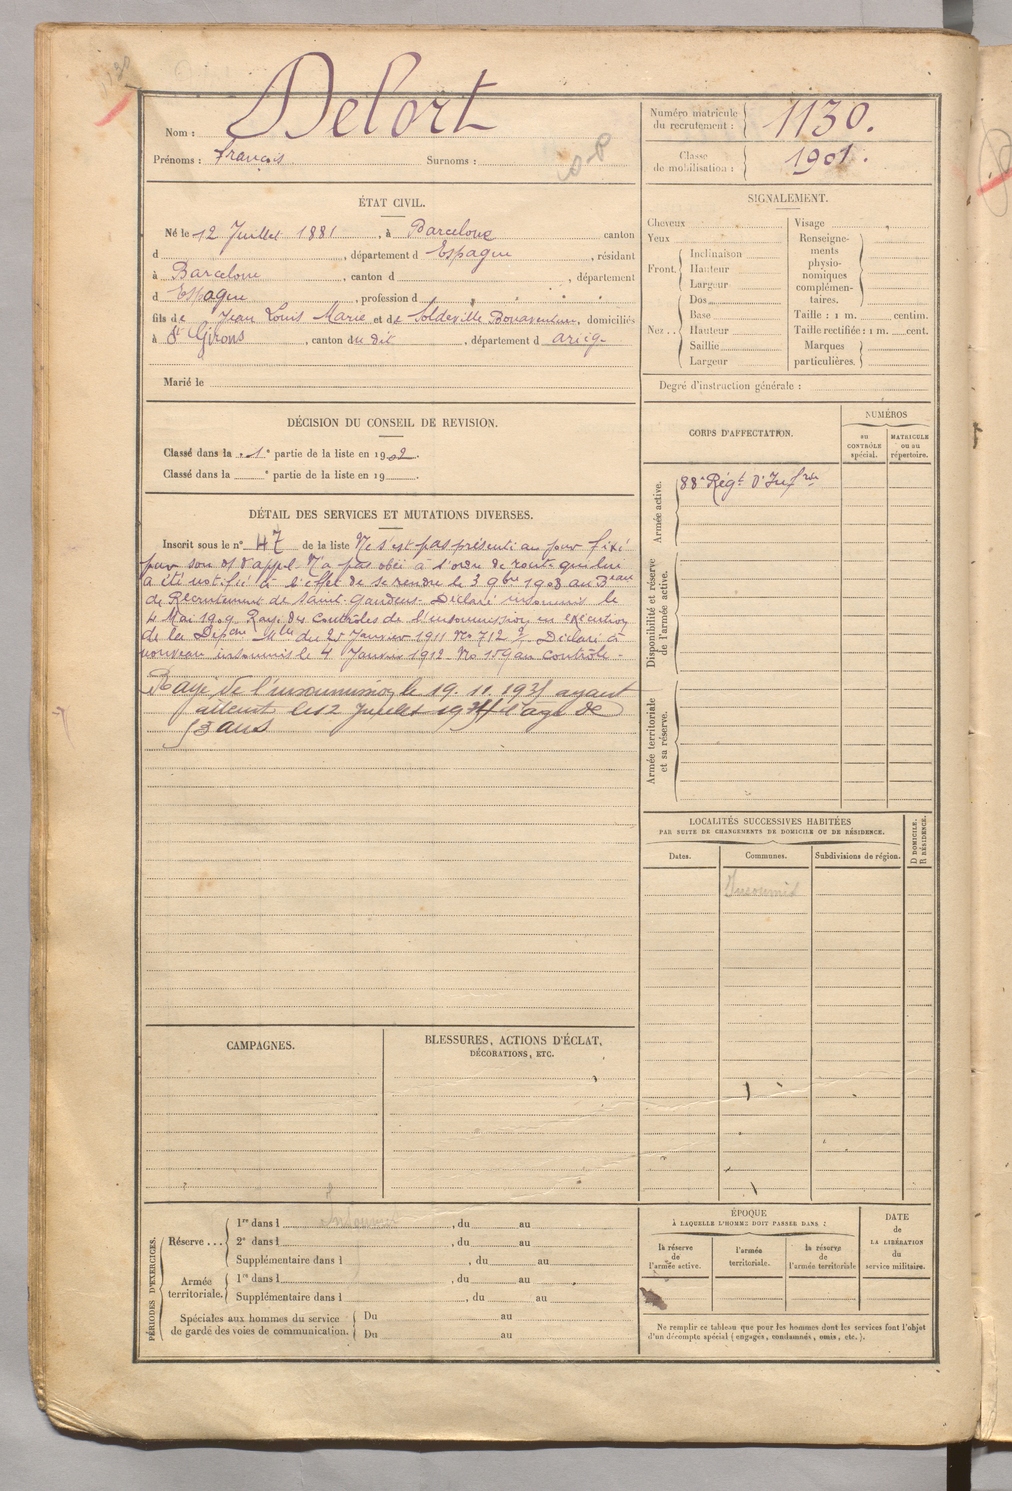 Delort
Nom :
Prénoms : François Surnoms :
Numéro matricule
du recrutement : 1130.
Classe
de mobilisation : 1901.
ÉTAT CIVIL.
Né le 12 Juillet 1881, à Barcelone canton
d , département d Espagne, résidant
à Barcelone, canton d , département
d Espagne, profession d
fils de Jean Louis Marie et de Soldeville Bonaventure, domiciliés
à St Girons, canton du dit, département d ariège
Marié le
SIGNALEMENT.
Cheveux
Yeux
Front. Inclinaison
Hauteur
Largeur
Nez .. Dos
Base
Hauteur
Saillie
Largeur
Visage
Renseigne-
ments
physio-
nomiques
complémen-
taires.
Taille : 1 m. centim.
Taille rectifiée : 1 m. cent.
Marques
particulières.
Degré d'instruction générale :
DÉCISION DU CONSEIL DE REVISION.
Classé dans la 1e partie de la liste en 1902.
Classé dans la e partie de la liste en 19 .
DÉTAIL DES SERVICES ET MUTATIONS DIVERSES.
Inscrit sous le n° 47 de la liste Ne s'est pas présenté au jour fixé
pour son d'appel. N'a pas obéi à l'ordre de route qui lui
a été notifié à l'effet de se rendre le 3 9bre 1908 au Beau
de Recrutement de Saint-Gaudens. Déclaré insoumis le
4 Mai 1909. Rayé des contrôles de l'insoumission en exécution
de la Dépche Mlle du 25 Janvier 1911 No 712 Déclaré à
nouveau insoumis le 4 Janvier 1912. No 159 au contrôle.
Rayé de l'insoumission le 19.11.1931 ayant
atteint le 12 Juillet l'age de
53 ans
CORPS D'AFFECTATION.
NUMÉROS
au
CONTRÔLE
spécial.
MATRICULE
ou au
répertoire.
Armée active.
88e Régt d'Infrie
Disponibilité et réserve
de l'armée active.
Armée territoriale
et sa réserve.
LOCALITÉS SUCCESSIVES HABITÉES
PAR SUITE DE CHANGEMENTS DE DOMICILE OU DE RÉSIDENCE.
D DOMICILE.
R RÉSIDENCE.
Dates. Communes. Subdivisions de région.
Insoumis
CAMPAGNES.
BLESSURES, ACTIONS D'ÉCLAT,
DÉCORATIONS, ETC.
PÉRIODES D'EXERCICES.
Réserve ... 1re dans l Insoumis, du au
2e dans l , du au
Supplémentaire dans l , du au
Armée
territoriale. 1re dans l , du au
Supplémentaire dans l , du au
Spéciales aux hommes du service
de garde des voies de communication. Du au
Du au
ÉPOQUE
À LAQUELLE L'HOMME DOIT PASSER DANS :
la réserve
de
l'armée active.
l'armée
territoriale.
la réserve
de
l'armée territoriale
DATE
de
LA LIBÉRATION
du
service militaire.
Ne remplir ce tableau que pour les hommes dont les services font l'objet
d'un décompte spécial (engagés, condamnés, omis, etc.).